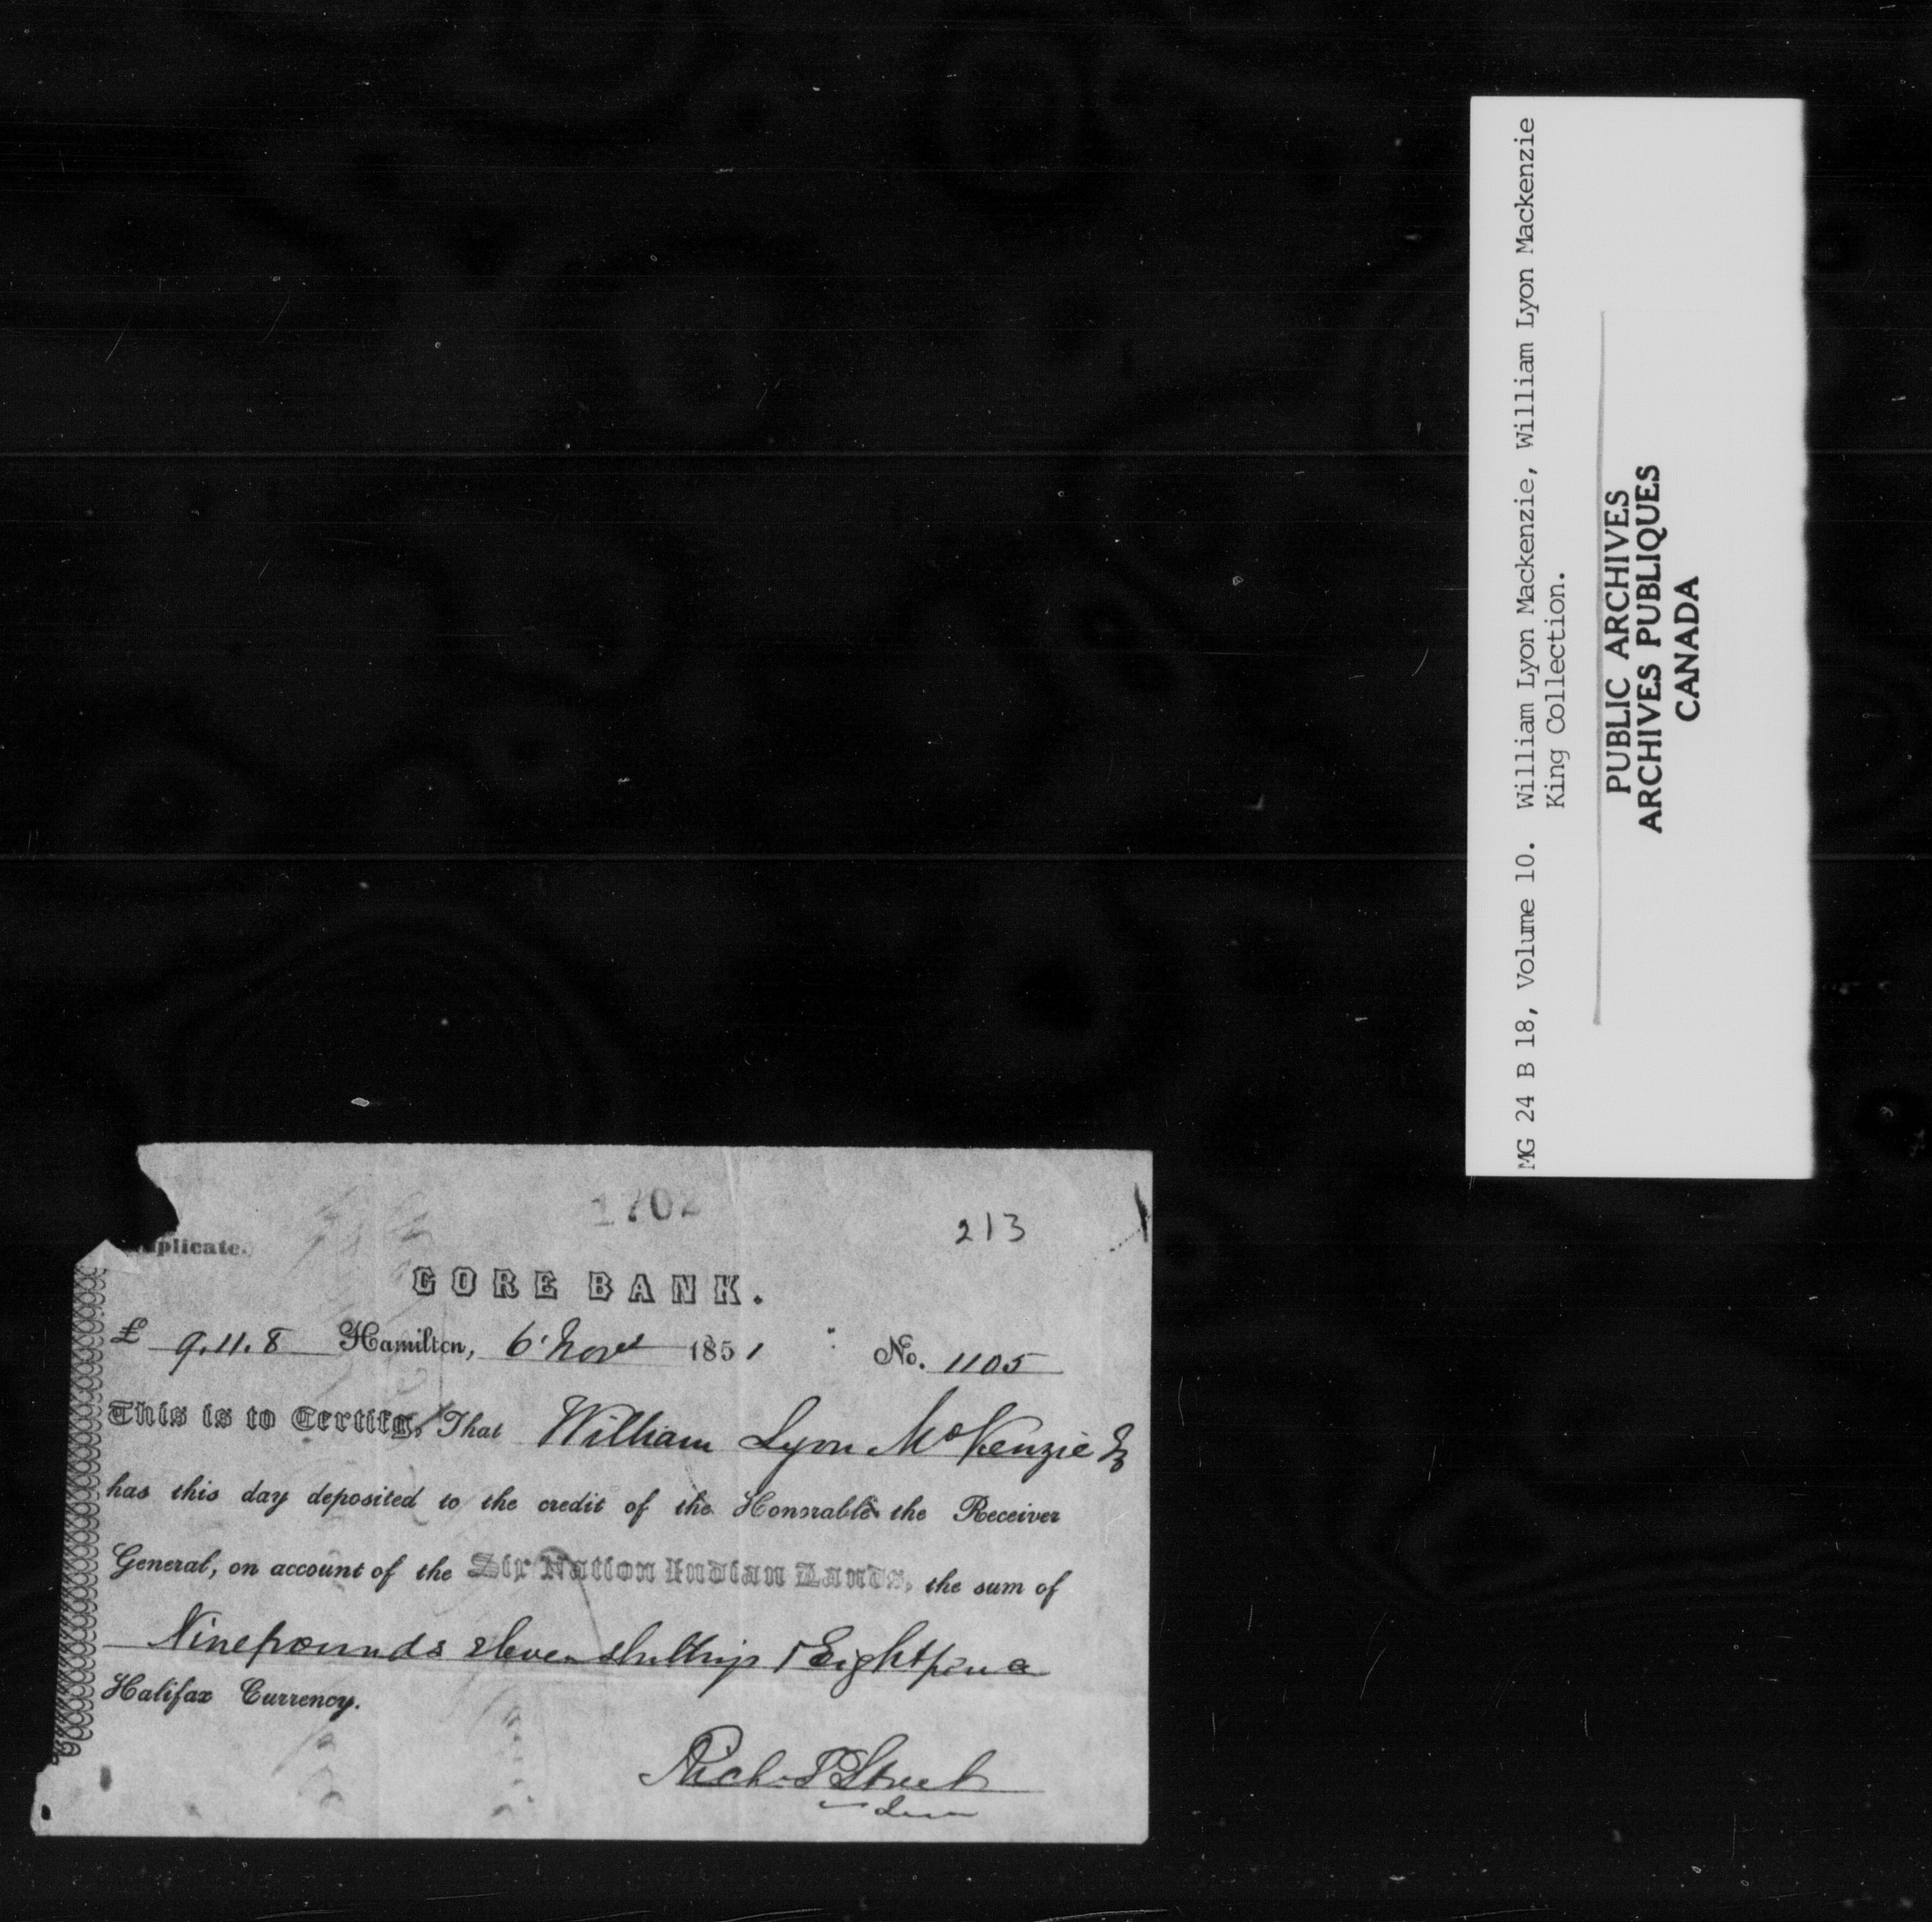 MG 24 B 18, Volume 10. William Lyon Mackenzie, William Lyon Mackenzie
King Collection.
PUBLIC ARCHIVES
ARCHIVES PUBLIQUES
CANADA
1702
213
uplicate.)
GORE BANK.
£ 9.11.8 Hamilton, 6' Novr 1851 No. 1105
This is to Certify, That William Lyon McKenzie
has this day deposited to the credit of the Honorable the Receiver
General, on account of the Six Nation Indian Lands, the sum of
Nine pounds eleven shillings & Eight pence
Halifax Currency.
Rich. P Street